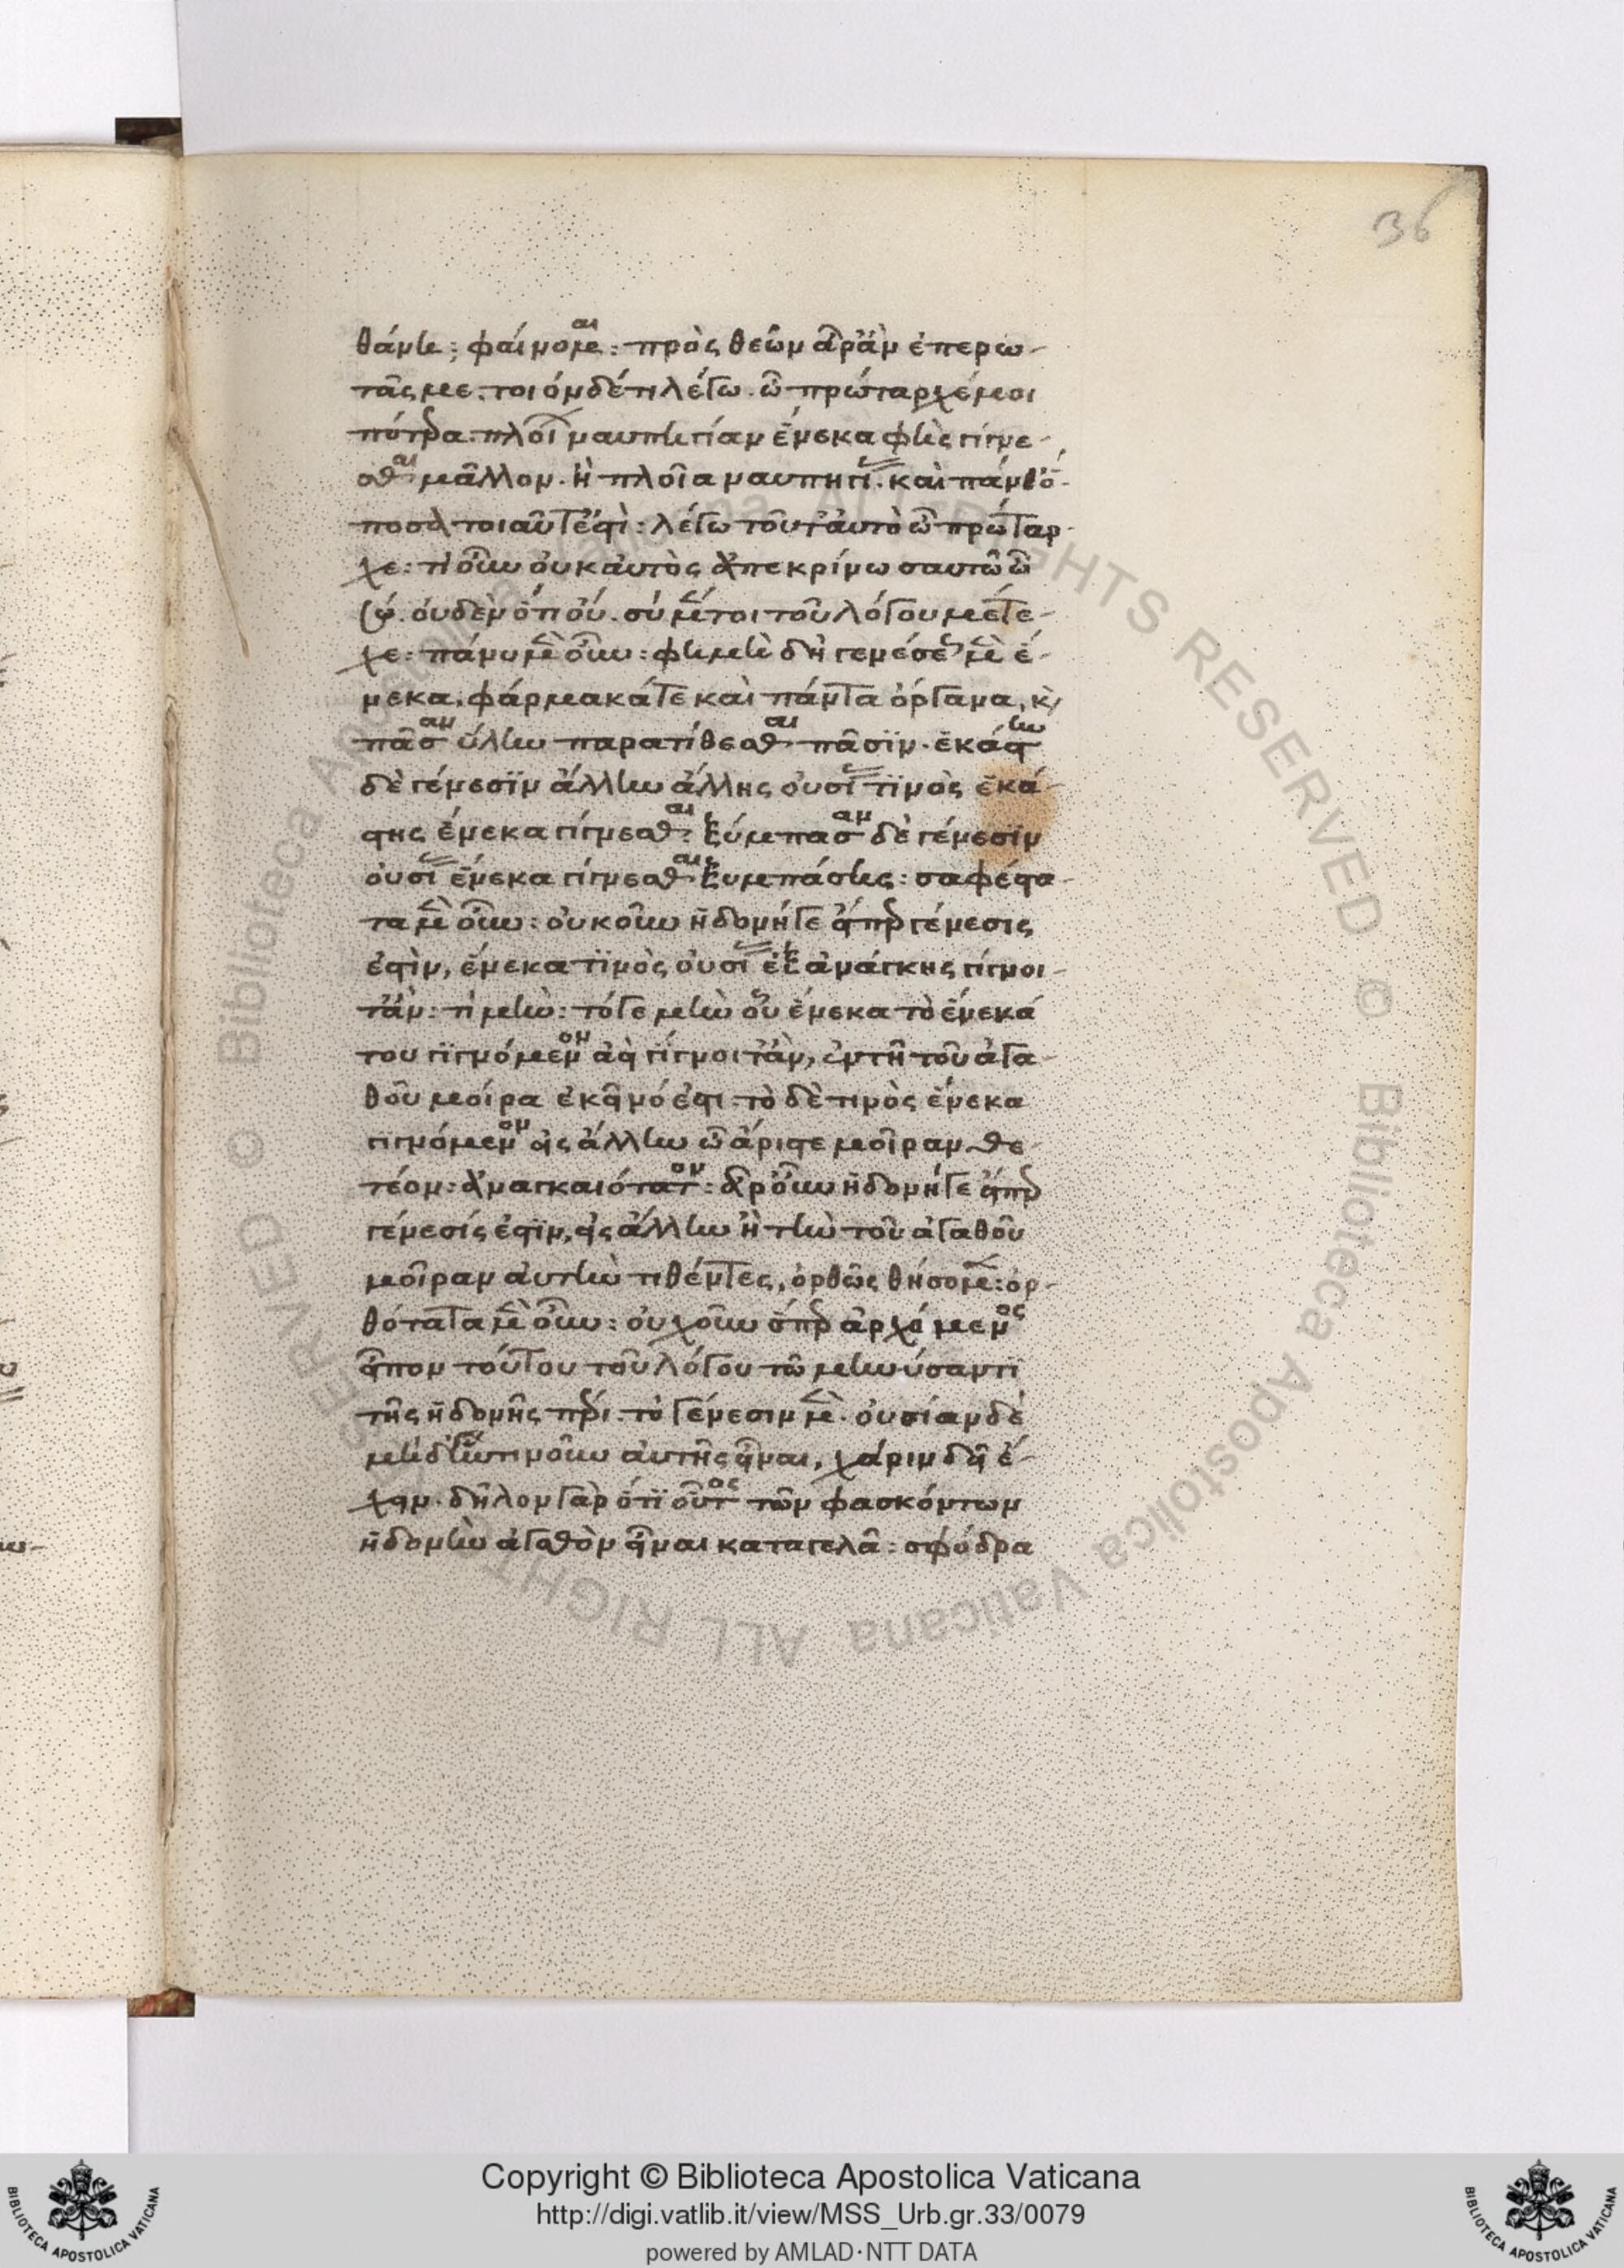 36
θάνει; φαίνομαι: πρὸς θεῶν ἆρ' ἂν ἐπερω-
τᾶς με. τοιόνδέ τι λέγω. ὦ πρώταρχέ μοι
πότερα πλοίων ναυπηγίαν ἕνεκα φῂς γίγνε-
σθαι μᾶλλον. ἢ πλοῖα ναυπηγίας. καὶ πάνθ' ὁ-
πόσα τοιαῦτ' ἐστί: λέγω τοῦτ' αὐτὸ ὦ πρώταρ-
χε: τί οὖν οὐκ αὐτὸς ἀπεκρίνω σαυτῶ ὦ
σώ. οὐδὲν ὅτι οὔ. σὺ μέντοι τοῦ λόγου μέτε-
χε: πάνυ μὲν οὖν: φημὶ δὴ γενέσεως μὲν ἕ-
νεκα, φάρμακά τε καὶ πάντα ὄργανα, καὶ
πᾶσαν ὕλην παρατίθεσθαι πᾶσϊν. ἑκάστην
δὲ γένεσϊν ἄλλην ἄλλης οὐσίας τϊνὸς ἑκά-
στης ἕνεκα γίγνεσθαι. ξύμπασαν δὲ γένεσϊν
οὐσίας ἕνεκα γίγνεσθαι ξυμπάσης: σαφέστα-
τα μὲν οὖν: οὐκοῦν ἡδονή γε εἴπερ γένεσις
ἐστὶν, ἕνεκα τϊνὸς οὐσίας ἐξ ἀνάγκης γίγνοι-
τ' ἄν: τί μήν: τό γε μὴν οὗ ἕνεκα τὸ ἕνεκά
του γϊγνόμενον ἀεὶ γϊγνοιτ' ἄν, ἐν τῇ τοῦ ἀγα-
θοῦ μοίρα ἐκεῖνό ἐστι. τὸ δὲ τινὸς ἕνεκα
γιγνόμενον εἰς ἄλλην ὦ ἄριστε μοῖραν θε-
τέον: ἀναγκαιότατον: ἆρ' οὖν ἡδονή γε εἴπερ
γένεσίς ἐστϊν, εἰς ἄλλην ἢ τὴν τοῦ ἀγαθοῦ
μοῖραν αὐτὴν τιθέντες, ὀρθῶς θήσομεν: ὀρ-
θότατα μὲν οὖν: οὐχοῦν ὅπερ ἀρχόμενος
εἶπον τούτου τοῦ λόγου τῶ μηνύσαντϊ
τῆς ἡδονῆς πέρι. τὸ γένεσιν μὲν. οὐσίαν δὲ
μηδ' ἡντινοῦν αὐτῆς εἶναι, χάριν δεῖ ἔ-
χειν. δῆλον γὰρ ὅτϊ οὗτος τῶν φασκόντων
ἡδονὴν ἀγαθὸν εἶναι καταγελᾶ: σφόδρα
Copyright © Biblioteca Apostolica Vaticana
http://digi.vatlib.it/view/MSS_Urb.gr.33/0079
powered by AMLAD·NTT DATA